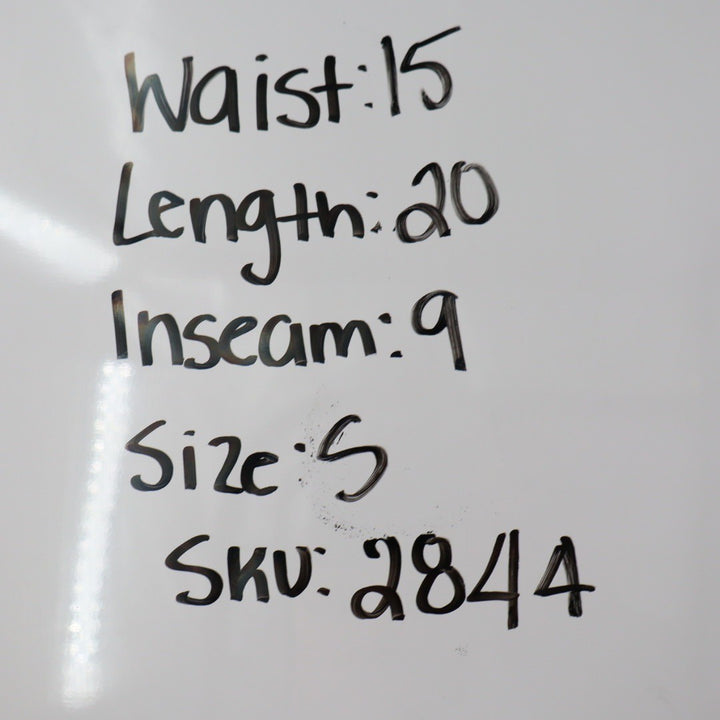 Waist:15
Length:20
Inseam:9
Size:S
SKU:2844